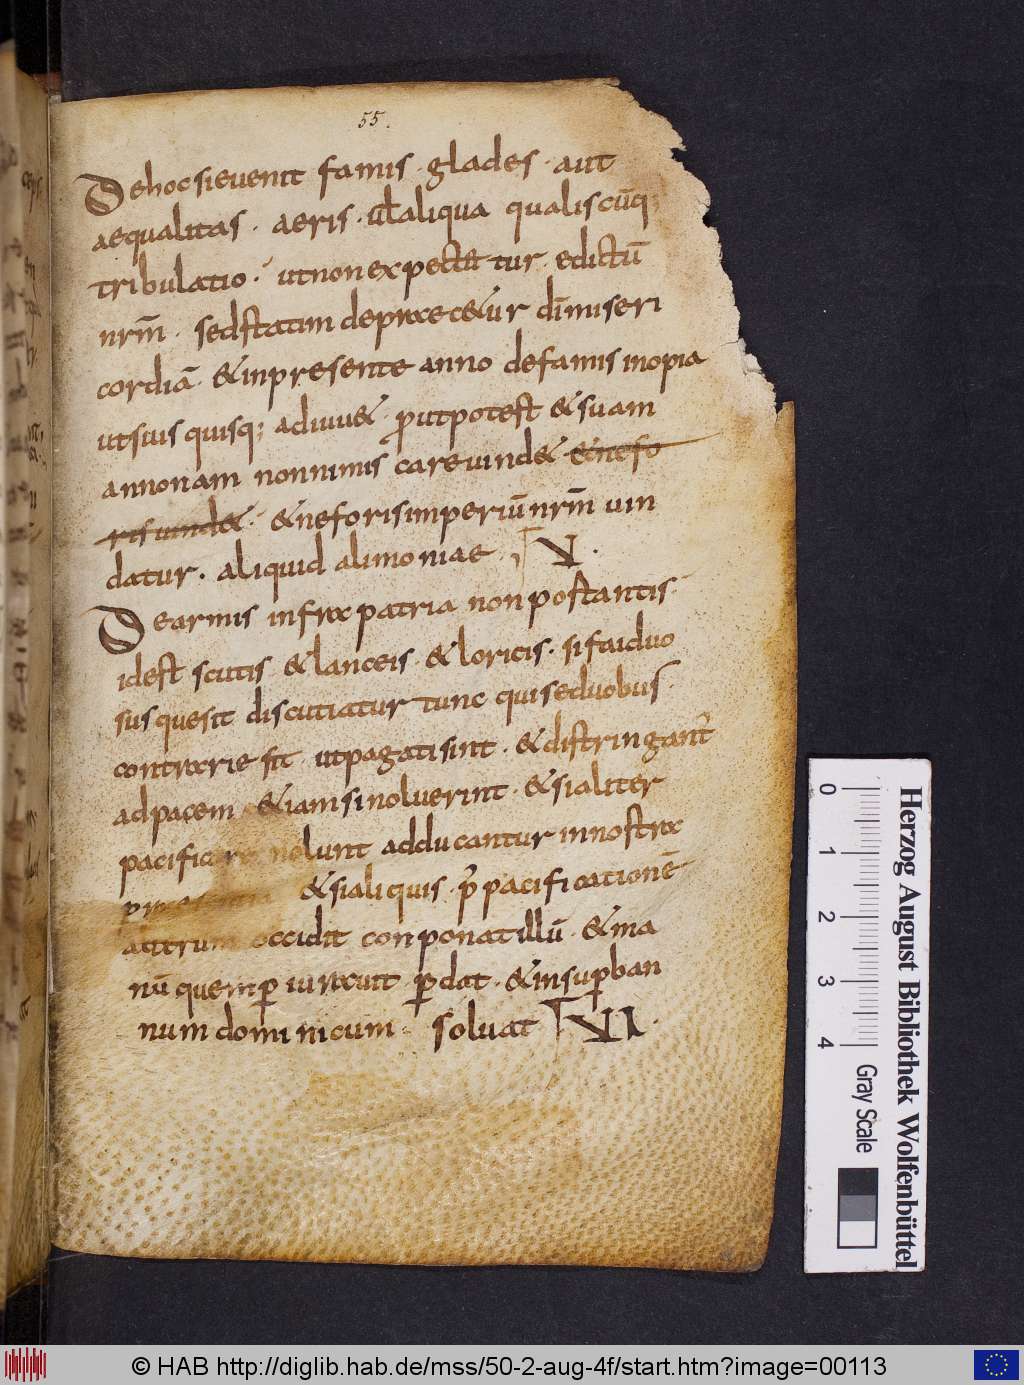 55.
De hoc si euenit famis · glades · aut
aequalitas · aeris · ul̄ aliqua qualiscūq;
tribulatio · ut non expectetur · edictū
nrm̄ · sed statim deprecetur dī miseri
cordiā · & in presente anno de famis inopia
ut suis quisq; adiuu& · ꝓut potest & suam
annonam non nimis care uind& & ne fo
ris uind& · & ne foris imperiū nrm̄ uin
datur · aliquid alimoniae , V ·
De armis infra patria non postantis ·
idest scutis & lanceis · & loricis · si faiduo
sus quesit discutiatur tunc qui se duobus
contrarie sit ut pagati sint · & distringant̄
ad pacem & iam si noluerint · & si aliter
pacificare nolunt adducantur in nostra
& si aliquis · p̄ pacificationē
alterum occidit conponat illū · & ma
nū quem ꝑiurauit ꝑdat · & insuꝑ ban
num dominicum · soluat VI ·
0 1 2 3 4
Gray Scale
Herzog August Bibliothek Wolfenbüttel
© HAB http://diglib.hab.de/mss/50-2-aug-4f/start.htm?image=00113